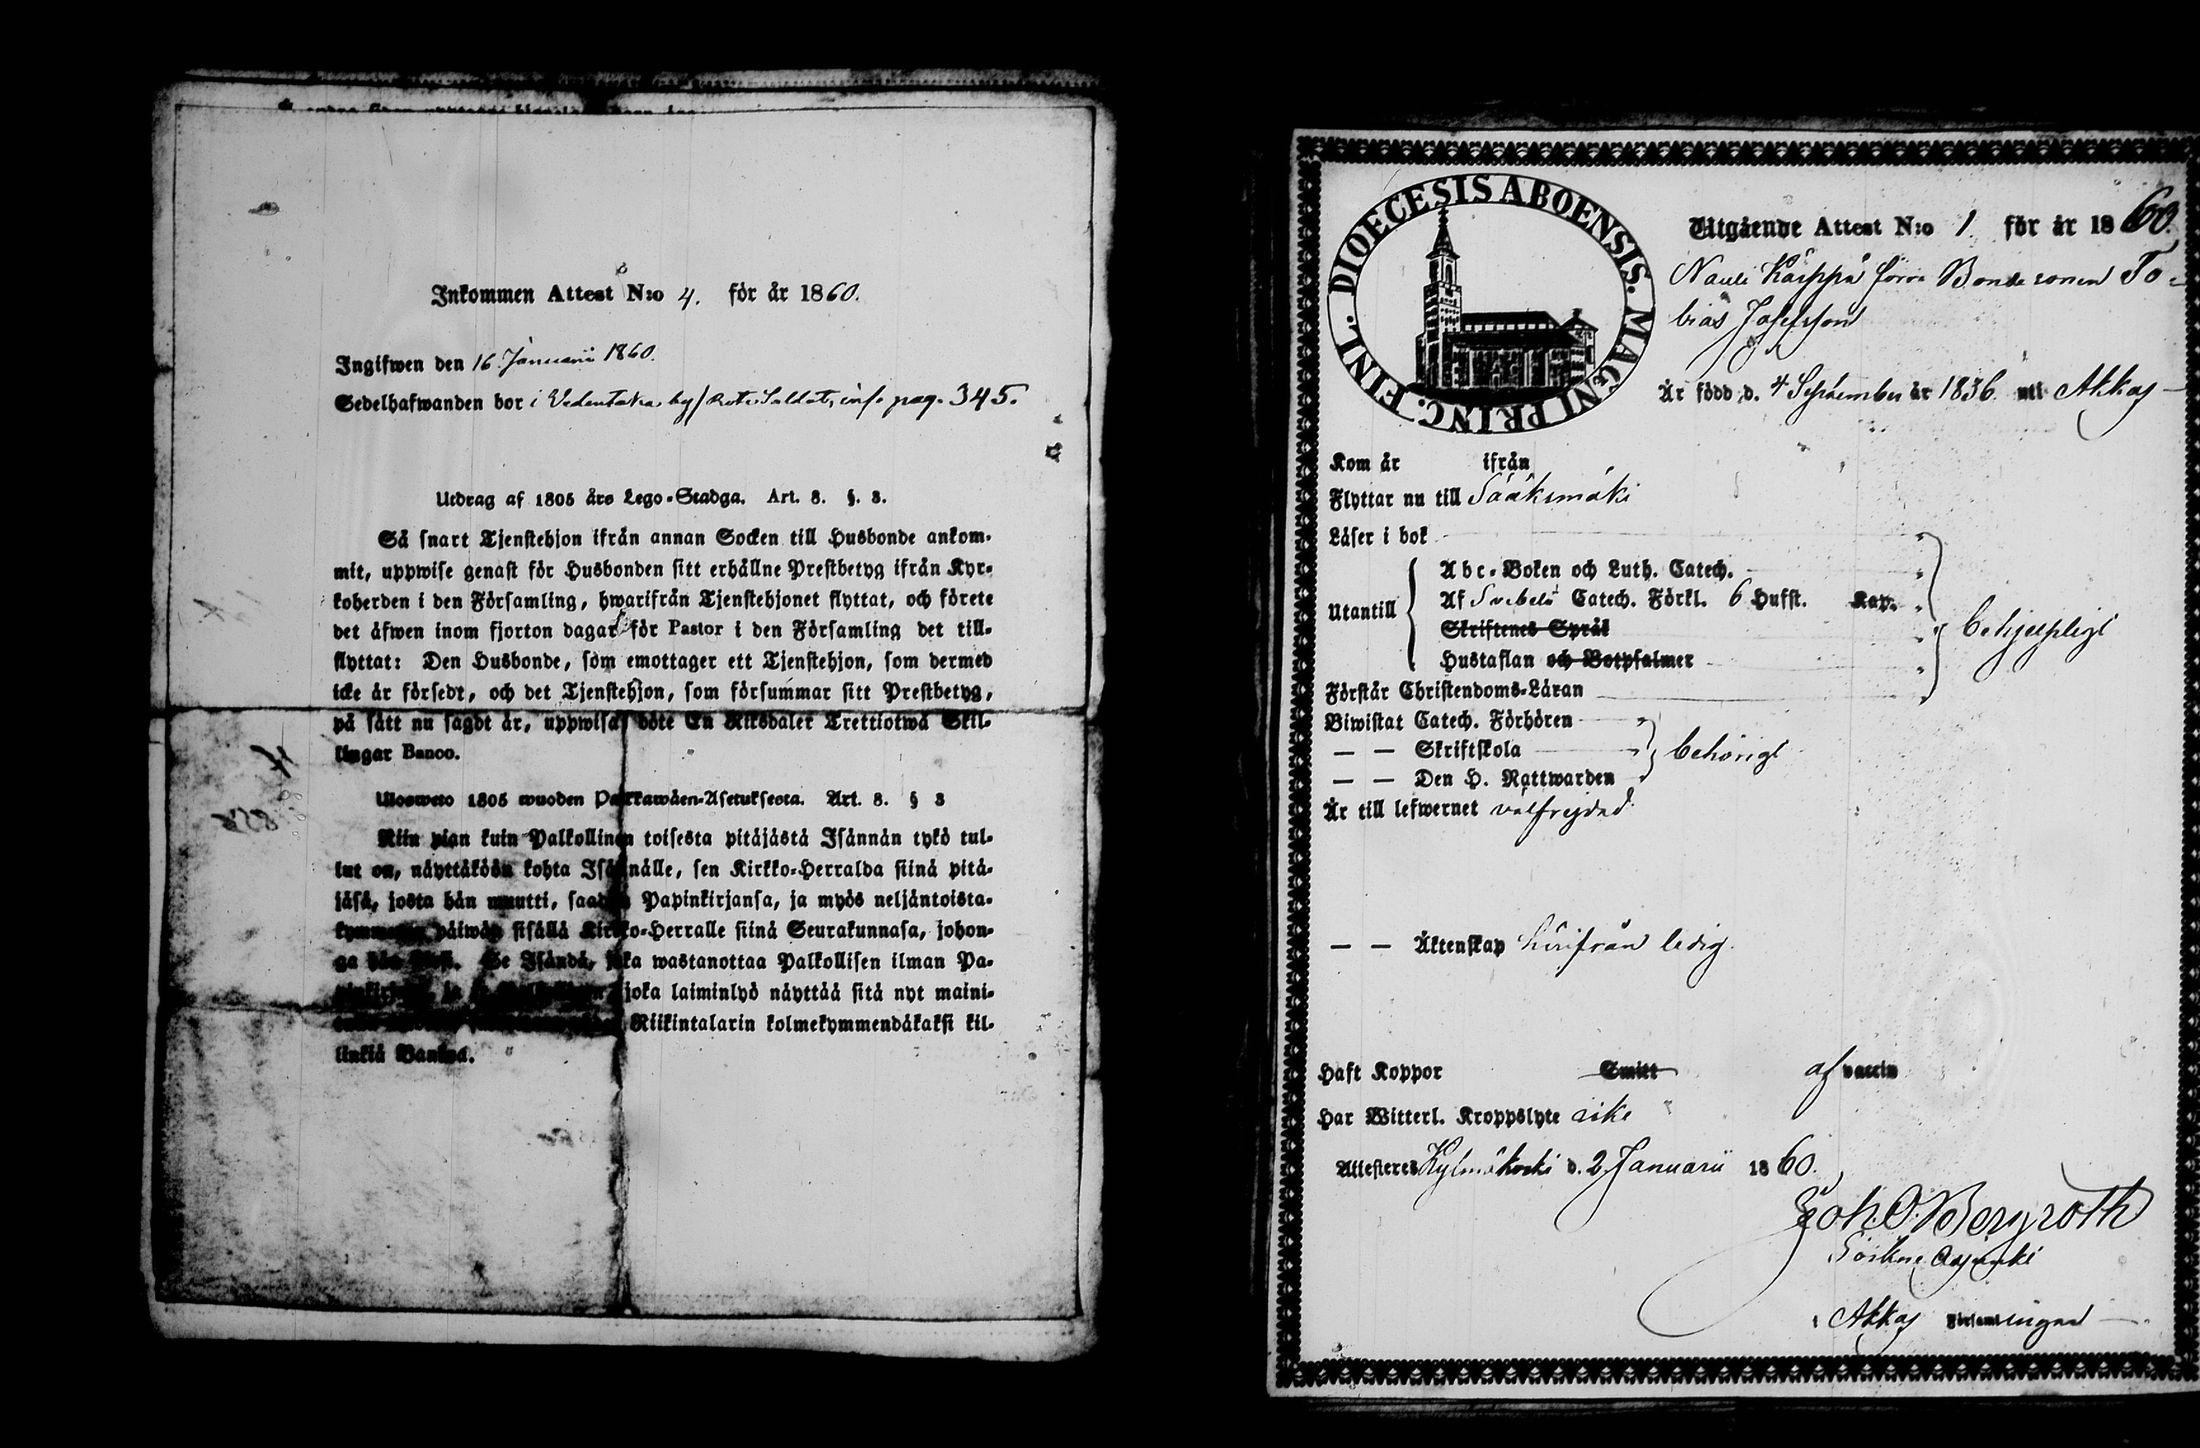 Inkommen Attest N:o 4. för år 1860.
Ingifwen den 16 Januarii 1860.
Sedelhafwanden bor i Vedentaka by / Rote Soldat, inf. pag. 345.
Utdrag af 1805 års Lego-Stadga. Art. 8. §. 3.
Så snart Tjenstehjon ifrån annan Socken till Husbonde ankom-
mit, uppwise genast för Husbonden sitt erhållne Prestbetyg ifrån Kyr-
koherden i den Församling, hwarifrån Tjenstehjonet flyttat, och förete
det äfwen inom fjorton dagar för Pastor i den Församling det till-
flyttat: Den Husbonde, som emottager ett Tjenstehjon, som dermed
icke är försedt, och det Tjenstehjon, som försummar sitt Prestbetyg,
på sätt nu sagdt är, uppwisa, böte En Riksdaler Trettiotwå Skil-
lingar Banco.
Ulosweto 1805 wuoden Palkkawäen-Asetuksesta. Art. 8. § 3
Niin pian kuin Palkollinen toisesta pitäjästä Isännän tykö tul-
lut on, näyttäköön kohta Isännälle, sen Kirkko-Herralda siinä pitä-
jäsä, josta hän muutti, saadun Papinkirjansa, ja myös neljäntoista-
päiwän sisällä Kirkko-Herralle siinä Seurakunnasa, johon-
ga hän Se Isändä, joka wastanottaa Palkollisen ilman Pa-
joka laiminlyö näyttää sitä nyt maini-
Riikintalarin kolmekymmendäkaksi kil-
linkiä Bankoa.
DIOECESIS ABOENSIS. MAGNI PRINC. FINL.
Utgående Attest N:o 1 för år 1860.
Nauli Käippä förra Bondesonen To-
bias Josefsson
Är född d. 4 September år 1836 uti Akkas
Kom år ifrån
Flyttar nu till Sääksmäki
Läser i bok
Utantill
Abc-Boken och Luth. Catech.
Af Svebelii Catech. Förkl. 6 Hufst. Kap.
Skriftenes Språk
Hustaflan och Botpsalmer
behjelpligt
Förstår Christendoms-Läran
Biwistat Catech. Förhören
— — Skriftskola behörigt
— — Den H. Nattwarden
Är till lefwernet välfrejdad.
— — Äktenskap härifrån ledig.
Haft Koppor Smitt af vaccin
Har Witterl. Kroppslyte icke
Attesteres Kylmäkoski d. 2 Januarii 1860.
Joh. O. Bergroth
Sockne Adjunkt
i Akkas Församlingen